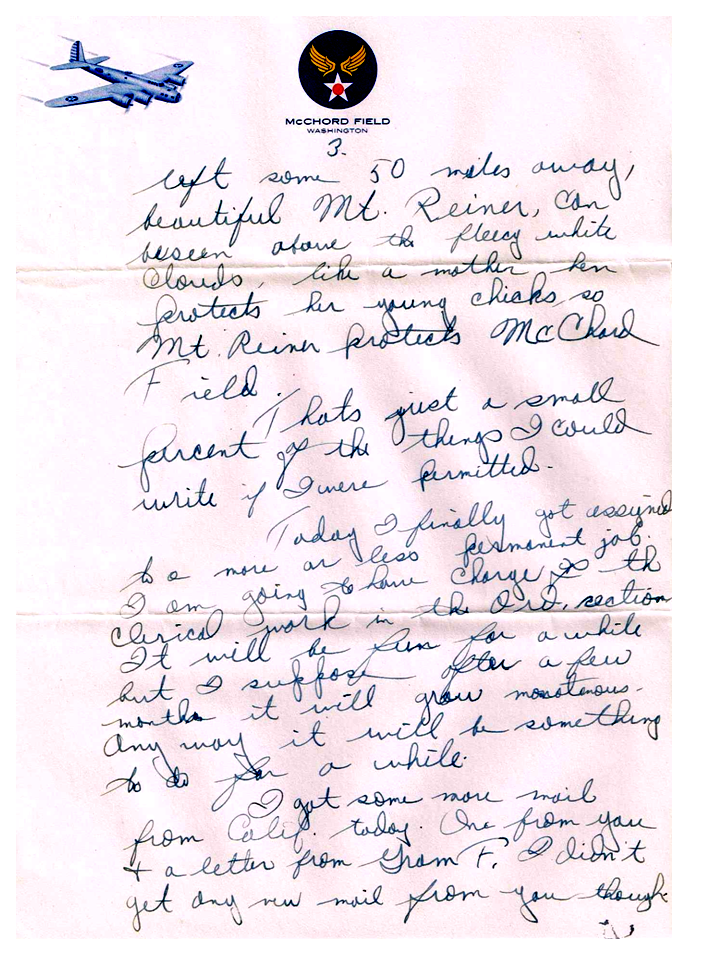 McCHORD FIELD
WASHINGTON
3.
left some 50 miles away,
beautiful Mt. Reiner, can
be seen above the fleecy white
clouds, like a mother hen
protects her young chicks, so
Mt. Reiner protects McChord
Field.
Thats just a small
percent of the things I could
write if I were permitted.
Today I finally got assigned
to a more or less permanent job.
I am going to have charge of th
clerical work in the Ord. section
It will be fun for a while
but I suppose after a few
months it will grow monotenous.
Any way it will be something
to do for a while.
I got some more mail
from Calif. today. One from you
+ a letter from Gram F. I didn't
get any new mail from you though